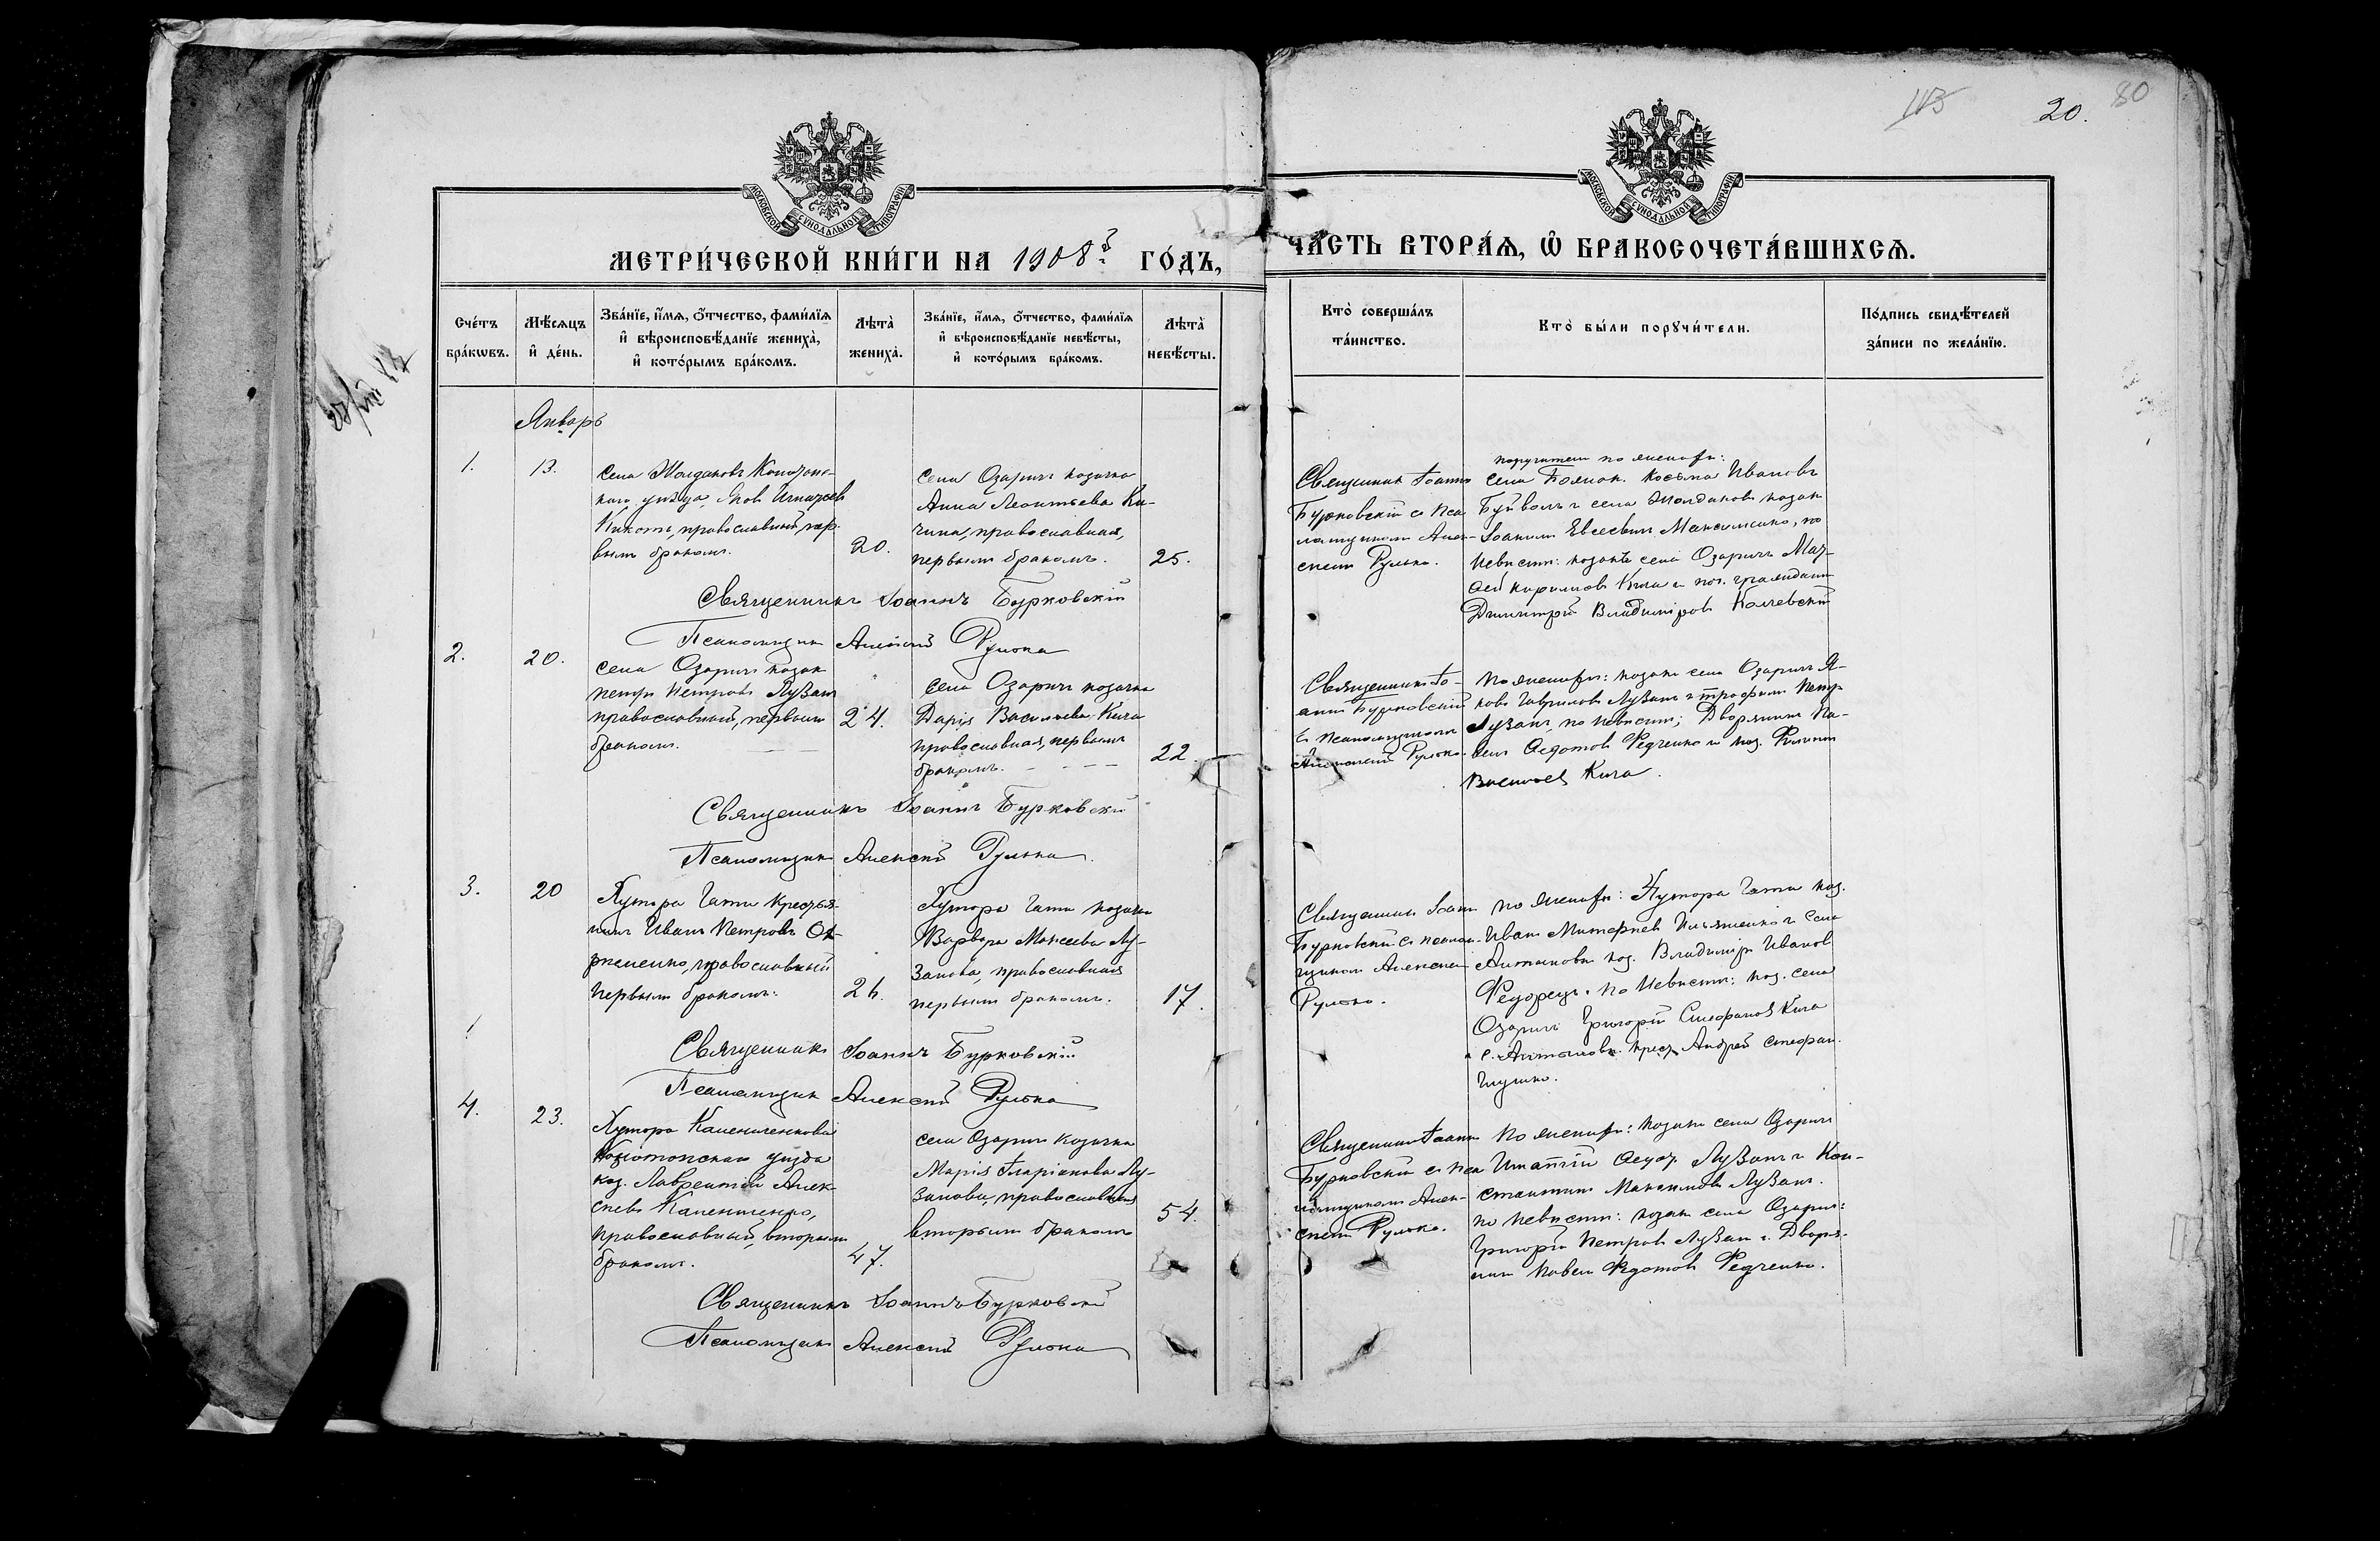 113
20.
80
МОСКОВСКОЙ СУНОДАЛЬНОЙ ТИПОГРАФІИ
МОСКОВСКОЙ СУНОДАЛЬНОЙ ТИПОГРАФІИ
МЕТРИ́ЧЕСКОЙ КНИ́ГИ НА 1908 ГО́ДЪ,
ЧА́СТЬ ВТОРА́Ѧ, Ѡ҆ БРАКОСОЧЕТА́ВШИХСѦ.
Сче́тъ бра́кѡвъ.
Мѣ́сѧцъ и҆ де́нь.
Зва́нїе, и҆́мѧ, ѻ҆́тчество, фами́лїѧ и҆ вѣроисповѣ́данїе жениха̀, и҆ кото́рымъ бра́комъ.
Лѣта̀ жениха̀.
Зва́нїе, и҆́мѧ, ѻ҆́тчество, фами́лїѧ и҆ вѣроисповѣ́данїе невѣ́сты, и҆ кото́рымъ бра́комъ.
Лѣта̀ невѣ́сты.
Кто̀ соверша́лъ та́инство.
Кто̀ бы́ли порꙋчи́тели.
По́дпись свидѣ́телей за́писи по жела́нїю.
Январь
1.
13.
села Жолдаковъ Конотопс-
каго уѣзда, Яков
православный, пер-
вымъ бракомъ.
20.
села Озаричъ козачка
Анна Леонтьева Ки-
чина, православная,
первымъ бракомъ.
25.
Священник Іоаннъ
Бурковскій съ пса-
ломщиком Алек-
сѣем Рулько.
поручители по женихѣ:
села Поянок. Косьма Ивановъ
Буйволъ и села Жолдаковъ козак
Іоаникій Евсеевич Максименко, по
невѣсти: козакъ села Озаричъ
Кирилловъ Кича и поч. гражданин
Димитрій Владиміров
Священникъ Іоаннъ Бурковскій
Псаломщик Алексѣй Рулько
2.
20.
села Озаричъ козак
Петръ Петровъ Лузан
православный, первым
бракомъ.
24.
села Озаричъ козачка
Дарія Васильева Кича
православная, первымъ
бракомъ.
22.
Священникъ Іо-
аннъ Бурковскій
съ псаломщиком
Алексѣем Рулько.
по женихѣ: козаки села Озаричъ Я-
ковъ Гавриловъ Лузанъ и Трофимъ Петр.
Лузанъ, по невѣсти; Дворянинъ Па-
велъ Федотовъ Федченко и коз. Филипп
Васильев Кича.
Священникъ Іоаннъ Бурковскій
Псаломщик Алексѣй Рулько.
3.
20
Хутора Гати крестья-
нинъ Иванъ Петровъ
православный
первым бракомъ.
26.
Хутора Гати козачка
Варвара Моисеева Лу-
занова, православная
первым бракомъ.
17.
Священник Іоанн
Бурковскій съ псалом-
щиком Алексѣем
Рулько.
по женихѣ: Хутора Гати коз.
Иванъ Ильяшенко и села
Антоновки коз. Владиміръ Иванов
Федорецъ. по невѣсти: коз. села
Озаричъ Григорій Стефанов Кича
и с. Антоновки крест. Андрей Стефан.
Глушко.
Священникъ Іоаннъ Бурковскій
Псаломщик Алексѣй Рулько
4.
23.
Хутора
Конотопскаго уѣзда
коз. Лаврентій Алек-
сѣевъ
православный, вторым
бракомъ.
47.
села Озаричъ козачка
Марія Иларіонова Лу-
занова, православная
вторымъ бракомъ
54.
Священникъ Іоаннъ
Бурковскій съ пса-
ломщиком Алек-
сѣем Рулько.
по женихѣ: козаки села Озаричъ
Игнатій Лузанъ и Кон-
стантинъ Максимовъ Лузанъ.
по невѣсти: козак села Озаричъ
Григорій Петровъ Лузан и Дворя-
нин Павел Федотовъ Федченко.
Священникъ Іоаннъ Бурковскій
Псаломщик Алексѣй Рулько